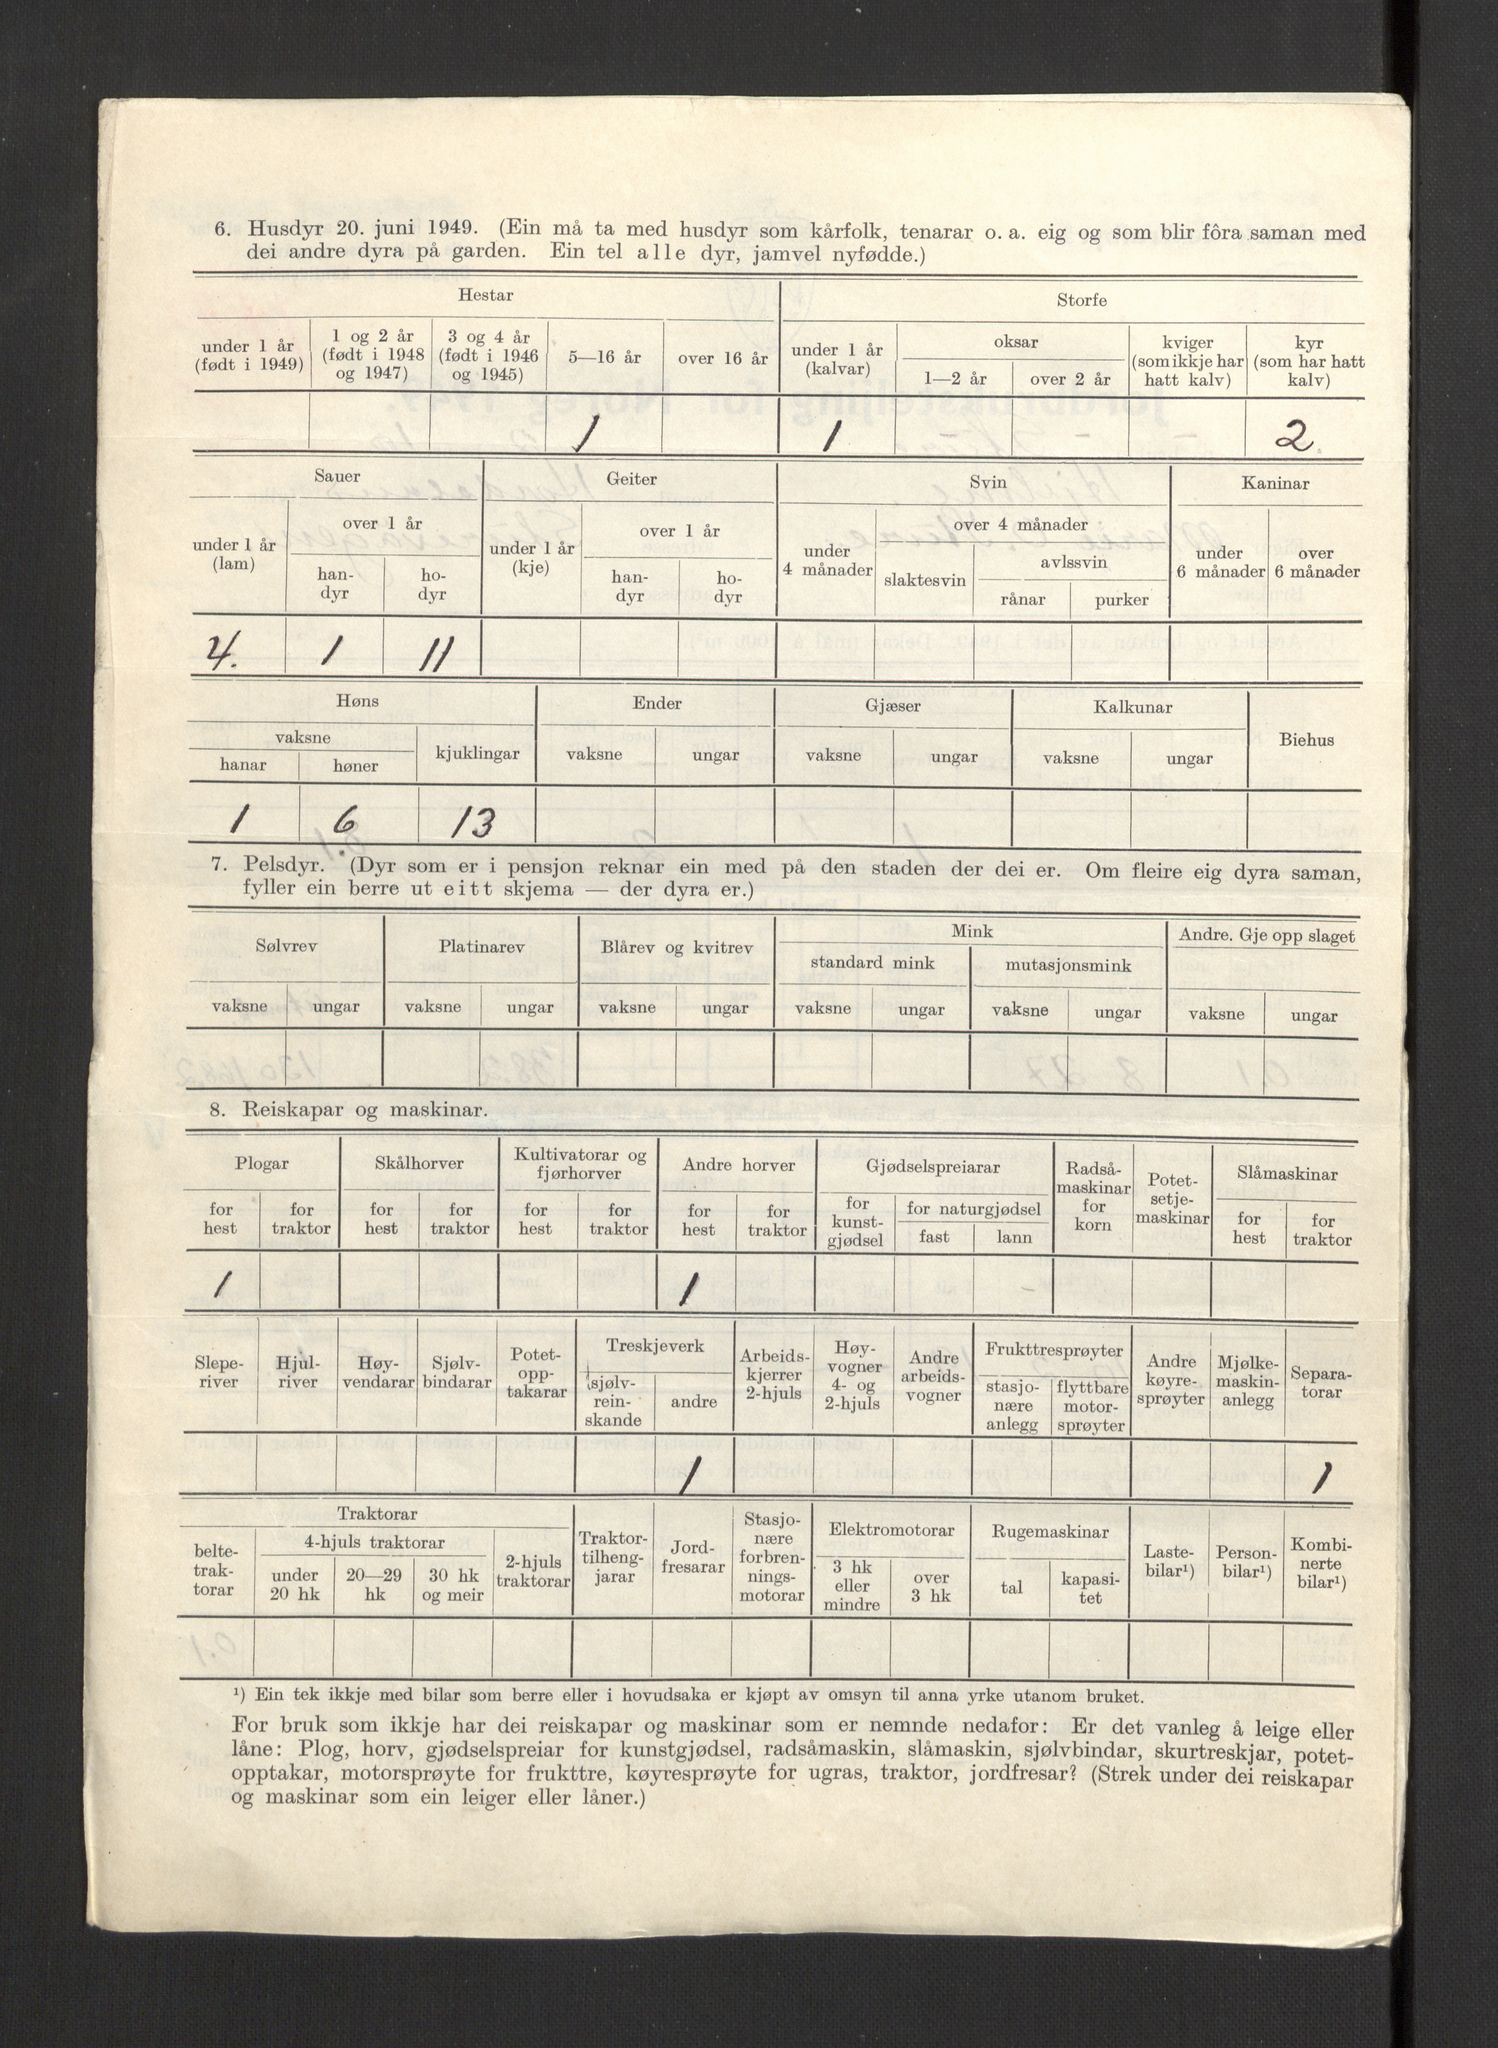 6. Husdyr 20. juni 1949. (Ein må ta med husdyr som kårfolk, tenarar o. a. eig og som blir fôra saman med
dei andre dyra på garden. Ein tel alle dyr, jamvel nyfødde.)
Hestar Storfe
under 1 år (født i 1949) 1 og 2 år (født i 1948 og 1947) 3 og 4 år (født i 1946 og 1945) 5—16 år over 16 år under 1 år (kalvar) oksar 1—2 år over 2 år kviger (som ikkje har hatt kalv) kyr (som har hatt kalv)
1 1 2.
Sauer Geiter Svin Kaninar
under 1 år (lam) over 1 år handyr hodyr under 1 år (kje) over 1 år handyr hodyr under 4 månader over 4 månader slaktesvin avlssvin rånar purker under 6 månader over 6 månader
4. 1 11
Høns Ender Gjæser Kalkunar Biehus
vaksne hanar høner kjuklingar vaksne ungar vaksne ungar vaksne ungar
1 6 13
7. Pelsdyr. (Dyr som er i pensjon reknar ein med på den staden der dei er. Om fleire eig dyra saman,
fyller ein berre ut eitt skjema — der dyra er.)
Sølvrev Platinarev Blårev og kvitrev Mink Andre. Gje opp slaget
standard mink mutasjonsmink
vaksne ungar vaksne ungar vaksne ungar vaksne ungar vaksne ungar vaksne ungar
8. Reiskapar og maskinar.
Plogar Skålhorver Kultivatorar og fjørhorver Andre horver Gjødselspreiarar Radsåmaskinar for korn Potetsetjemaskinar Slåmaskinar
for hest for traktor for hest for traktor for hest for traktor for hest for traktor for kunstgjødsel for naturgjødsel fast lann for hest for traktor
1 1
Sleperiver Hjulriver Høyvendarar Sjølvbindarar Potetopptakarar Treskjeverk sjølvreinskande andre Arbeidskjerrer 2-hjuls Høyvogner 4- og 2-hjuls Andre arbeidsvogner Frukttresprøyter stasjonære anlegg flyttbare motorsprøyter Andre køyresprøyter Mjølkemaskinanlegg Separatorar
1 1
Traktorar
beltetraktorar 4-hjuls traktorar under 20 hk 20—29 hk 30 hk og meir 2-hjuls traktorar Traktortilhengjarar Jordfresarar Stasjonære forbrenningsmotorar Elektromotorar 3 hk eller mindre over 3 hk Rugemaskinar tal kapasitet Lastebilar¹) Personbilar¹) Kombinerte bilar¹)
¹) Ein tek ikkje med bilar som berre eller i hovudsaka er kjøpt av omsyn til anna yrke utanom bruket.
For bruk som ikkje har dei reiskapar og maskinar som er nemnde nedafor: Er det vanleg å leige eller
låne: Plog, horv, gjødselspreiar for kunstgjødsel, radsåmaskin, slåmaskin, sjølvbindar, skurtreskjar, potet-
opptakar, motorsprøyte for frukttre, køyresprøyte for ugras, traktor, jordfresar? (Strek under dei reiskapar
og maskinar som ein leiger eller låner.)